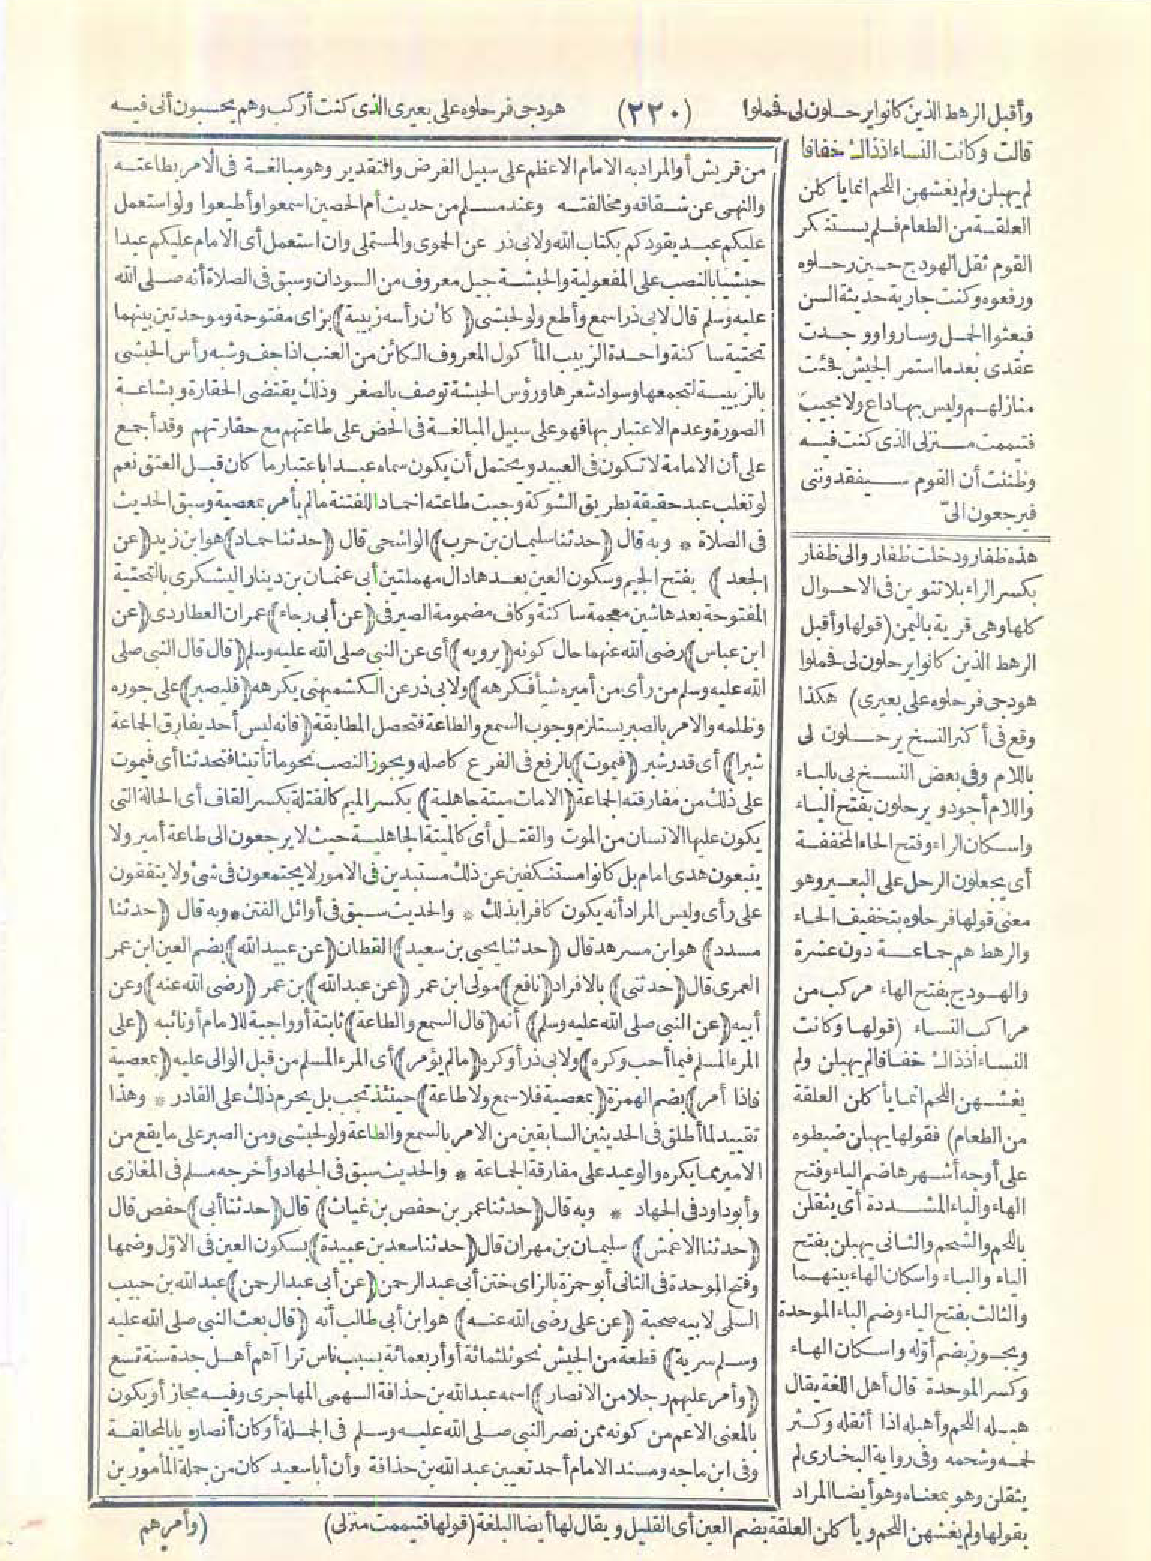 وأقبل الرهط الذين كانوا يرحلون لى فحملوا (٢٢٠) هودجى فرحلوه على بعيرى الذى كنت أركب وهم يحسبون أنى فيه
قالت وكانت النساء اذذاك خفافا
لم يهبلن ولم يغشهن اللحم انما يأكلن
العلقة من الطعام فلم يستنكر
القوم ثقل الهودج حين رحلوه
ورفعوه وكنت جارية حديثة السن
فبعثوا الجمل وساروا ووجدت
عقدى بعدما استمر الجيش فجئت
منازلهم وليس بها داع ولا مجيب
فتيممت منزلى الذى كنت فيه
وظننت أن القوم سيفقدونى
فيرجعون الىّ
هذه ظفار ودخلت ظفار والى ظفار
بكسر الراء بلا تنوين فى الاحوال
كلها وهى قرية باليمن (قولها وأقبل
الرهط الذين كانوا يرحلون لى فحملوا
هودجى فرحلوه على بعيرى) هكذا
وقع فى أكثر النسخ يرحلون لى
باللام وفى بعض النسخ بى بالباء
واللام أجود ويرحلون بفتح الياء
واسكان الراء وفتح الحاء المخففة
أى يجعلون الرحل على البعير وهو
معنى قولها فرحلوه بتخفيف الحاء
والرهط هم جماعة دون عشرة
والهودج بفتح الهاء مركب من
مراكب النساء (قولها وكانت
النساء اذذاك خفافا لم يهبلن ولم
يغشهن اللحم انما يأكلن العلقة
من الطعام) فقولها يهبلن ضبطوه
على أوجه أشهرها ضم الياء وفتح
الهاء والباء المشددة أى يثقلن
باللحم والشحم والثانى يهبلن بفتح
الياء والباء واسكان الهاء بينهما
والثالث بفتح الياء وضم الباء الموحدة
ويجوز بضم أوله واسكان الهاء
وكسر الموحدة قال أهل اللغة يقال
هبله اللحم وأهبله اذا أثقله وكثر
لحمه وشحمه وفى رواية البخارى لم
يثقلن وهو بمعناه وهو أيضا المراد
بقولها ولم يغشهن اللحم ويأكلن العلقة بضم العين أى القليل ويقال لها أيضا البلغة (قولها فتيممت منزلى)
من قريش أو المراد به الامام الاعظم على سبيل الفرض والتقدير وهو مبالغة فى الامر بطاعته
والنهى عن شقاقه ومخالفته وعند مسلم من حديث أم الحصين اسمعوا وأطيعوا ولو استعمل
عليكم عبد يقودكم بكتاب الله ولابى ذر عن الحموى والمستملى وان استعمل أى الامام عليكم عبدا
حبشيا بالنصب على المفعولية والحبشة جيل معروف من السودان وسبق فى الصلاة أنه صلى الله
عليه وسلم قال لابى ذر اسمع وأطع ولو لحبشى (كأن رأسه زبيبة) بزاى مفتوحة وموحدتين بينهما
تحتية ساكنة واحدة الزبيب المأكول المعروف الكائن من العنب اذا جف وشبه رأس الحبشى
بالزبيبة لتجمعها وسواد شعرها ورؤس الحبشة توصف بالصغر وذلك يقتضى الحقارة وبشاعة
الصورة وعدم الاعتبار بها فهو على سبيل المبالغة فى الحض على طاعتهم مع حقارتهم وقد أجمع
على أن الامامة لا تكون فى العبيد ويحتمل أن يكون سماه عبدا باعتبار ما كان قبل العتق نعم
لو تغلب عبد حقيقة بطريق الشوكة وجبت طاعته اخمادا للفتنة مالم يأمر بمعصية وسبق الحديث
فى الصلاة * وبه قال (حدثنا سليمان بن حرب) الواشحى قال (حدثنا حماد) هو ابن زيد (عن
الجعد) بفتح الجيم وسكون العين بعدها دال مهملتين أبى عثمان بن دينار اليشكرى بالتحتية
المفتوحة بعدها شين معجمة ساكنة وكاف مضمومة الصيرفى (عن أبى رجاء) عمران العطاردى (عن
ابن عباس) رضى الله عنهما حال كونه (يرويه) أى عن النبى صلى الله عليه وسلم (قال قال النبى صلى
الله عليه وسلم من رأى من أميره شيأ فكرهه) ولابى ذر عن الكشميهنى يكرهه (فليصبر) على جوره
وظلمه والامر بالصبر يستلزم وجوب السمع والطاعة فتحصل المطابقة (فانه ليس أحد يفارق الجماعة
شبرا) أى قدر شبر (فيموت) بالرفع فى الفرع كاصله ويجوز النصب نحو ما تأتينا فتحدثنا أى فيموت
على ذلك من مفارقته الجماعة (الا مات ميتة جاهلية) بكسر الميم كالقتلة بكسر القاف أى الحالة التى
يكون عليها الانسان من الموت والقتل أى كالميتة الجاهلية حيث لا يرجعون الى طاعة أمير ولا
يتبعون هدى امام بل كانوا مستنكفين عن ذلك مستبدين فى الامور لا يجتمعون فى شئ ولا يتفقون
على رأى وليس المراد أنه يكون كافرا بذلك * والحديث سبق فى أوائل الفتن * وبه قال (حدثنا
مسدد) هو ابن مسرهد قال (حدثنا يحيى بن سعيد) القطان (عن عبيد الله) بضم العين ابن عمر
العمرى قال (حدثنى) بالافراد (نافع) مولى ابن عمر (عن عبد الله) بن عمر (رضى الله عنه) وعن
أبيه (عن النبى صلى الله عليه وسلم) أنه (قال السمع والطاعة) ثابتة أو واجبة للامام أو نائبه (على
المرء المسلم فيما أحب وكره) ولابى ذر أو كره (مالم يؤمر) أى المرء المسلم من قبل الوالى عليه (بمعصية
فاذا أمر) بضم الهمزة (بمعصية فلا سمع ولا طاعة) حينئذ تجب بل يحرم ذلك على القادر * وهذا
تقييد لما أطلق فى الحديثين السابقين من الامر بالسمع والطاعة ولو لحبشى ومن الصبر على ما يقع من
الامير مما يكره والوعيد على مفارقة الجماعة * والحديث سبق فى الجهاد وأخرجه مسلم فى المغازى
وأبو داود فى الجهاد * وبه قال (حدثنا عمر بن حفص بن غياث) قال (حدثنا أبى) حفص قال
(حدثنا الاعمش) سليمان بن مهران قال (حدثنا سعد بن عبيدة) بسكون العين فى الاوّل وضمها
وفتح الموحدة فى الثانى أبو حمزة بالزاى ختن أبى عبد الرحمن (عن أبى عبد الرحمن) عبد الله بن حبيب
السلمى لابيه صحبة (عن على رضى الله عنه) هو ابن أبى طالب أنه (قال بعث النبى صلى الله عليه
وسلم سرية) قطعة من الجيش نحو ثلثمائة أو أربعمائة بسبب ناس تراآهم أهل جدة سنة تسع
(وأمر عليهم رجلا من الانصار) اسمه عبد الله بن حذافة السهمى المهاجرى وفيه مجاز أو يكون
بالمعنى الاعم من كونه ممن نصر النبى صلى الله عليه وسلم فى الجملة أو كان أنصاريا بالمحالفة
وفى ابن ماجه ومسند الامام أحمد تعيين عبد الله بن حذافة وأن أبا سعيد كان من جملة المأمورين
(وأمرهم